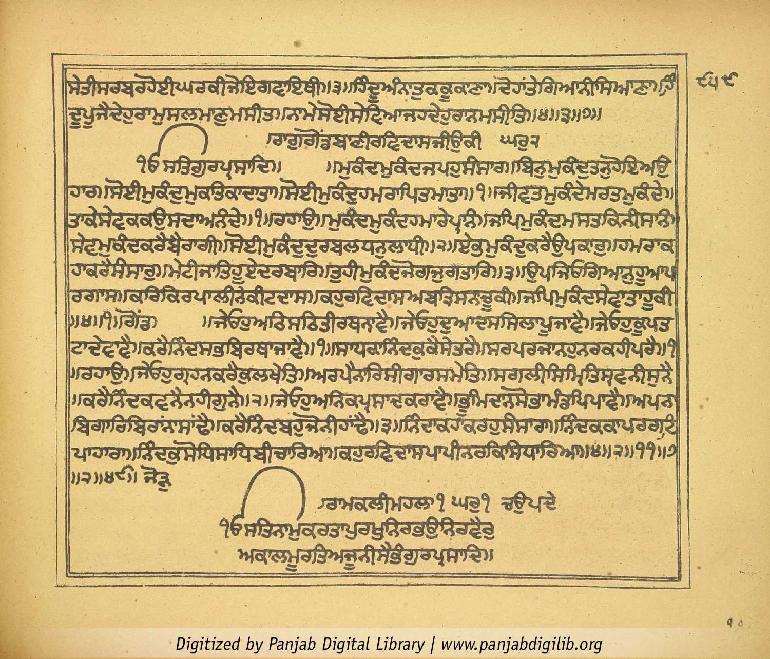 ਸੇਤੀਸਰਬਰਹੋਈਘਰਕੀਜੋਇਗਵਾਇਥੀ॥੩॥ਹਿੰਦੂਅੰਨਾਤੁਰਕੂਕਾਣਾ॥ਦੋਹਾਂਤੇਗਿਆਨੀਸਿਆਣਾ॥ਹਿੰ
ਦੂਪੂਜੈਦੇਹੁਰਾਮੁਸਲਮਾਣੁਮਸੀਤ॥ਨਾਮੇਸੋਈਸੇਵਿਆਜਹਦੇਹੁਰਾਨਮਸੀਤਿ॥੪॥੩॥੭॥
੮੭੫
ਰਾਗੁਗੋਂਡਬਾਣੀਰਵਿਦਾਸਜੀਉਕੀ ਘਰੁ੨
ੴਸਤਿਗੁਰਪ੍ਰਸਾਦਿ॥ ॥ਮੁਕੰਦਮੁਕੰਦਜਪਹੁਸੰਸਾਰ॥ਬਿਨੁਮੁਕੰਦਤਨੁਹੋਇਅਉ
ਹਾਰ॥ਸੋਈਮੁਕੰਦੁਮੁਕਤਿਕਾਦਾਤਾ॥ਸੋਈਮੁਕੰਦੁਹਮਰਾਪਿਤਮਾਤਾ॥੧॥ਜੀਵਤਮੁਕੰਦੇਮਰਤਮੁਕੰਦੇ॥
ਤਾਕੇਸੇਵਕਕਉਸਦਾਅਨੰਦੇ॥੧॥ਰਹਾਉ॥ਮੁਕੰਦਮੁਕੰਦਹਮਾਰੇਪ੍ਰਾਨੰ॥ਜਪਿਮੁਕੰਦਮਸਤਕਿਨੀਸਾਨੰ॥
ਸੇਵਮੁਕੰਦਕਰੈਬੈਰਾਗੀ॥ਸੋਈਮੁਕੰਦੁਦੁਰਬਲਧਨੁਲਾਧੀ॥੨॥ਏਕੁਮੁਕੰਦੁਕਰੈਉਪਕਾਰੁ॥ਹਮਰਾਕ
ਹਾਕਰੈਸੰਸਾਰੁ॥ਮੇਟੀਜਾਤਿਹੂਏਦਰਬਾਰਿ॥ਤੁਹੀਮੁਕੰਦਜੋਗਜੁਗਤਾਰਿ॥੩॥ਉਪਜਿਓਗਿਆਨੁਹੂਆਪ
ਰਗਾਸ॥ਕਰਿਕਿਰਪਾਲੀਨੇਕੀਟਦਾਸ॥ਕਹੁਰਵਿਦਾਸਅਬਤ੍ਰਿਸਨਾਚੂਕੀ॥ਜਪਿਮੁਕੰਦਸੇਵਾਤਾਹੂਕੀ
॥੪॥੧॥ਗੋਂਡ॥ ॥ਜੇਓਹੁਅਠਸਠਿਤੀਰਥਨਾਵੈ॥ਜੇਓਹੁਦੁਆਦਸਸਿਲਾਪੂਜਾਵੈ॥ਜੇਓਹੁਕੂਪਤ
ਟਾਦੇਵਾਵੈ॥ਕਰੈਨਿੰਦਸਭਬਿਰਥਾਜਾਵੈ॥੧॥ਸਾਧਕਾਨਿੰਦਕੁਕੈਸੇਤਰੈ॥ਸਰਪਰਜਾਨਹੁਨਰਕਹੀਪਰੈ॥੧
॥ਰਹਾਉ॥ਜੇਓਹੁਗ੍ਰਹਨਕਰੈਕੁਲਖੇਤਿ॥ਅਰਪੈਨਾਰਿਸੀਗਾਰਸਮੇਤਿ॥ਸਗਲੀਸਿੰਮ੍ਰਿਤਿਸ੍ਰਵਨੀਸੁਨੈ
॥ਕਰੈਨਿੰਦਕਵਨੈਨਹੀਗੁਨੈ॥੨॥ਜੇਓਹੁਅਨਿਕਪ੍ਰਸਾਦਕਰਾਵੈ॥ਭੂਮਿਦਾਨਸੋਭਾਮੰਡਪਿਪਾਵੈ॥ਅਪਨਾ
ਬਿਗਾਰਿਬਿਰਾਂਨਾਸਾਂਢੈ॥ਕਰੈਨਿੰਦਬਹੁਜੋਨੀਹਾਂਢੈ॥੩॥ਨਿੰਦਾਕਹਾਕਰਹੁਸੰਸਾਰਾ॥ਨਿੰਦਕਕਾਪਰਗਟਿ
ਪਾਹਾਰਾ॥ਨਿੰਦਕੁਸੋਧਿਸਾਧਿਬੀਚਾਰਿਆ॥ਕਹੁਰਵਿਦਾਸਪਾਪੀਨਰਕਿਸਿਧਾਰਿਆ॥੪॥੨॥੧੧॥੭
॥੨॥੪੯॥ ਜੋੜੁ
ਰਾਮਕਲੀਮਹਲਾ੧ ਘਰੁ੧ ਚਉਪਦੇ
ੴਸਤਿਨਾਮੁਕਰਤਾਪੁਰਖੁਨਿਰਭਉਨਿਰਵੈਰੁ
ਅਕਾਲਮੂਰਤਿਅਜੂਨੀਸੈਭੰਗੁਰਪ੍ਰਸਾਦਿ॥
Digitized by Panjab Digital Library | www.panjabdigilib.org